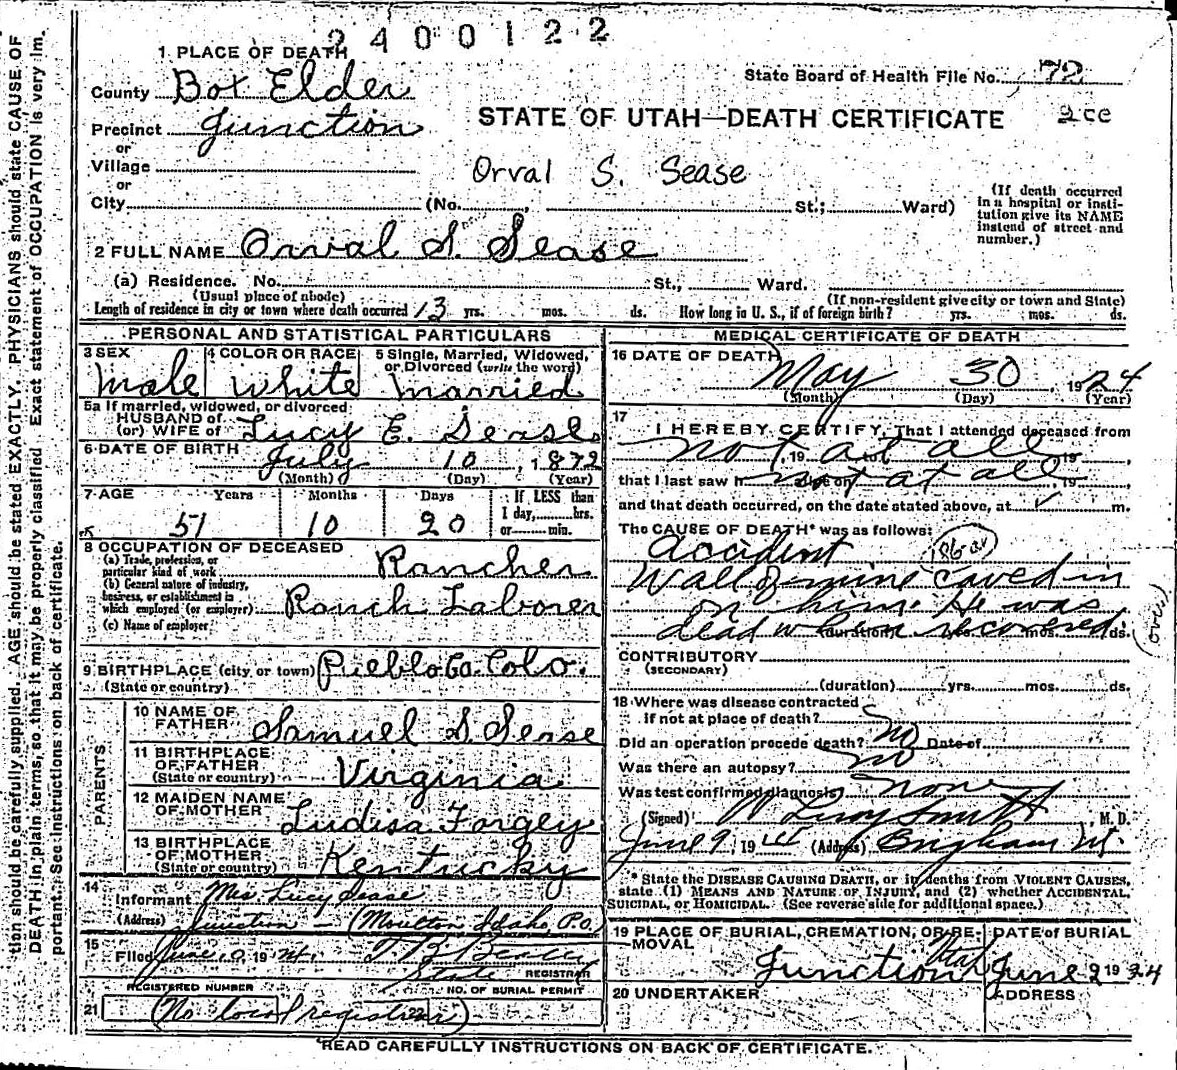 2400122
1 PLACE OF DEATH
State Board of Health File No. 72
County Box Elder
STATE OF UTAH—DEATH CERTIFICATE
Precinct Junction
or
Village
Orval S. Sease
or
City (No. , St.; Ward)
(If death occurred in a hospital or insti-
tution give its NAME
instead of street and
number.)
2 FULL NAME Orval S. Sease
(a) Residence. No. St., Ward.
(Usual place of abode) (If non-resident give city or town and State)
Length of residence in city or town where death occurred 13 yrs. mos. ds. How long in U. S., if of foreign birth? yrs. mos. ds.
PERSONAL AND STATISTICAL PARTICULARS
3 SEX 4 COLOR OR RACE 5 Single, Married, Widowed,
or Divorced (write the word)
male white married
5a If married, widowed, or divorced
HUSBAND of
(or) WIFE of Lucy E. Sease
6 DATE OF BIRTH
July 10, 1872
(Month) (Day) (Year)
7 AGE Years Months Days If LESS than
1 day, hrs.
or min.
51 10 20
8 OCCUPATION OF DECEASED
(a) Trade, profession, or
particular kind of work Rancher
(b) General nature of industry,
business, or establishment in
which employed (or employer) Ranch Laborer
(c) Name of employer
9 BIRTHPLACE (city or town) Pueblo Co. Colo.
(State or country)
PARENTS
10 NAME OF
FATHER Samuel S. Sease
11 BIRTHPLACE
OF FATHER
(State or country) Virginia
12 MAIDEN NAME
OF MOTHER Ludisa Forgey
13 BIRTHPLACE
OF MOTHER
(State or country) Kentucky
14
Informant Mrs. Lucy Sease
(Address) Junction - (Moulton Idaho, P.O.)
15
Filed June 10, 19 24.
State REGISTRAR
REGISTERED NUMBER NO. OF BURIAL PERMIT
21 (No local registrar) 22
MEDICAL CERTIFICATE OF DEATH
16 DATE OF DEATH
May 30, 1924
(Month) (Day) (Year)
17
I HEREBY CERTIFY, That I attended deceased from
not, 19 at all 19 ,
that I last saw h not at all, 19 ,
and that death occurred, on the date stated above, at m.
The CAUSE OF DEATH* was as follows:
accident
Wall of mine caved in
on him. He was
dead when recovered.
(duration) yrs. mos. ds.
(over)
CONTRIBUTORY
(SECONDARY)
(duration) yrs. mos. ds.
18 Where was disease contracted
if not at place of death?
Did an operation precede death? no Date of
Was there an autopsy? no
Was test confirmed diagnosis? none
(Signed) Smith, M. D.
June 9, 19 24 (Address) Bingham Ut.
*State the DISEASE CAUSING DEATH, or in deaths from VIOLENT CAUSES,
state (1) MEANS AND NATURE OF INJURY, and (2) whether ACCIDENTAL,
SUICIDAL, or HOMICIDAL. (See reverse side for additional space.)
19 PLACE OF BURIAL, CREMATION, OR RE-
MOVAL
DATE of BURIAL
Junction Utah June 2 1924
20 UNDERTAKER ADDRESS
READ CAREFULLY INSTRUCTIONS ON BACK OF CERTIFICATE.
tion should be carefully supplied. AGE should be stated EXACTLY. PHYSICIANS should state CAUSE OF
DEATH in plain terms, so that it may be properly classified. Exact statement of OCCUPATION is very im-
portant. See instructions on back of certificate.